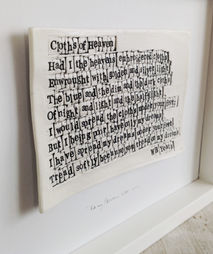 Cloths of Heaven
Had I the heavens embroidered cloths
Enwrought with golden and silver light
The blue and the dim and the dark cloths
Of night and light and the half light
I would spread the cloths under your feet
But I being poor have only my dreams
I have spread my dreams under your feet
Tread softly because you tread on my dreams
WB Yeats